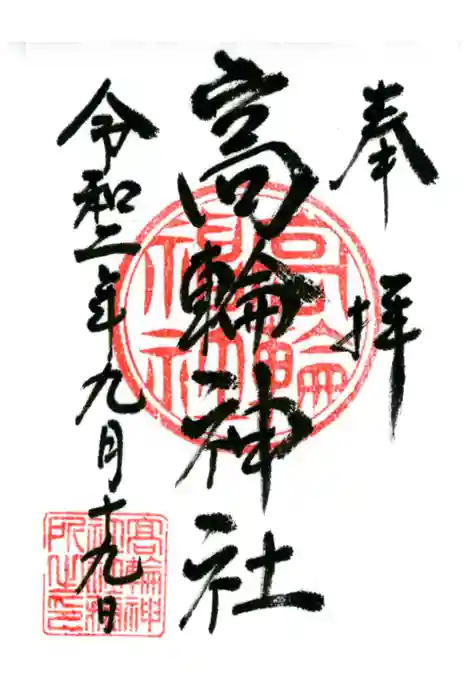 奉拝
高輪神社
令和二年九月十九日
高輪神社
高輪神
社社務
所之印